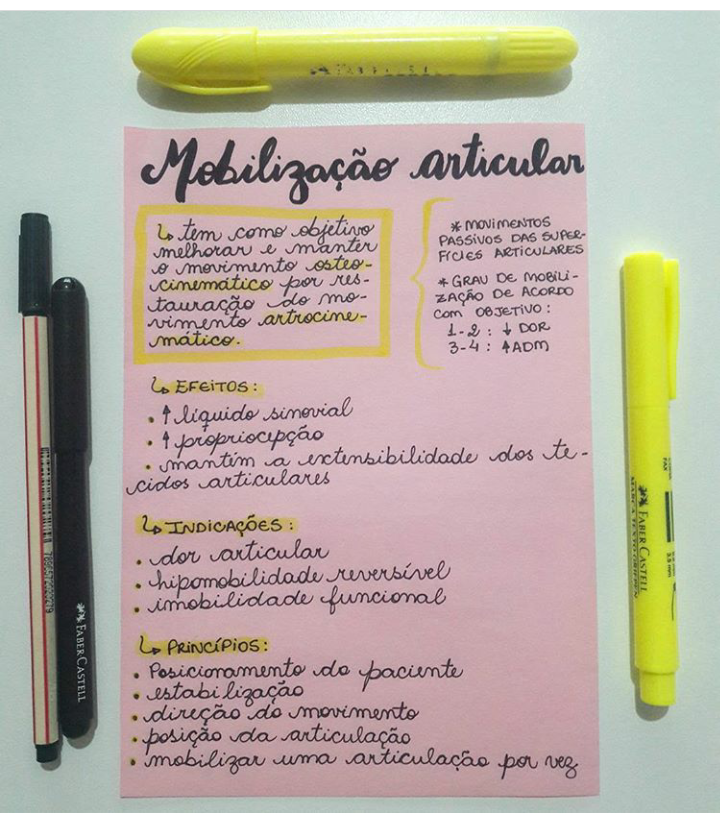 Mobilização articular
↳ tem como objetivo
melhorar e manter
o movimento osteo-
cinemático por res-
tauração do mo-
vimento artrocine-
mático.
* MOVIMENTOS
PASSIVOS DAS SUPER-
FÍCIES ARTICULARES
* GRAU DE MOBILI-
ZAÇÃO DE ACORDO
COM OBJETIVO:
1-2: ↓ DOR
3-4: ↑ADM
↳ EFEITOS:
• ↑ líquido sinovial
• ↑ propriocepção
• mantém a extensibilidade dos te-
cidos articulares
↳ INDICAÇÕES:
• dor articular
• hipomobilidade reversível
• imobilidade funcional
↳ PRINCÍPIOS:
• Posicionamento do paciente
• estabilização
• direção do movimento
• posição da articulação
• mobilizar uma articulação por vez
FABER CASTELL
FABER CASTELL